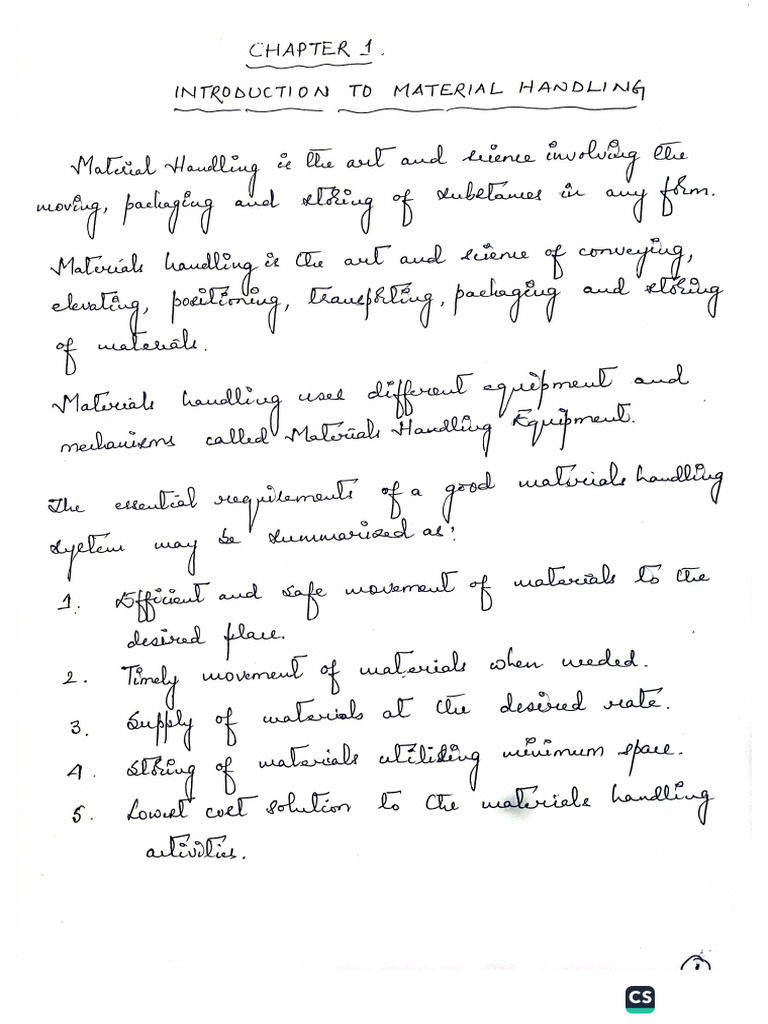 CHAPTER 1.
INTRODUCTION TO MATERIAL HANDLING
Material Handling is the art and science involving the
moving, packaging and storing of substances in any form.
Materials handling is the art and science of conveying,
elevating, positioning, transporting, packaging and storing
of materials.
Materials handling uses different equipment and
mechanisms called Materials Handling Equipment.
The essential requirements of a good materials handling
system may be summarized as:
1. Efficient and safe movement of materials to the
desired place.
2. Timely movement of materials when needed.
3. Supply of materials at the desired rate.
4. Storing of materials utilising minimum space.
5. Lowest cost solution to the materials handling
activities.
1
CS